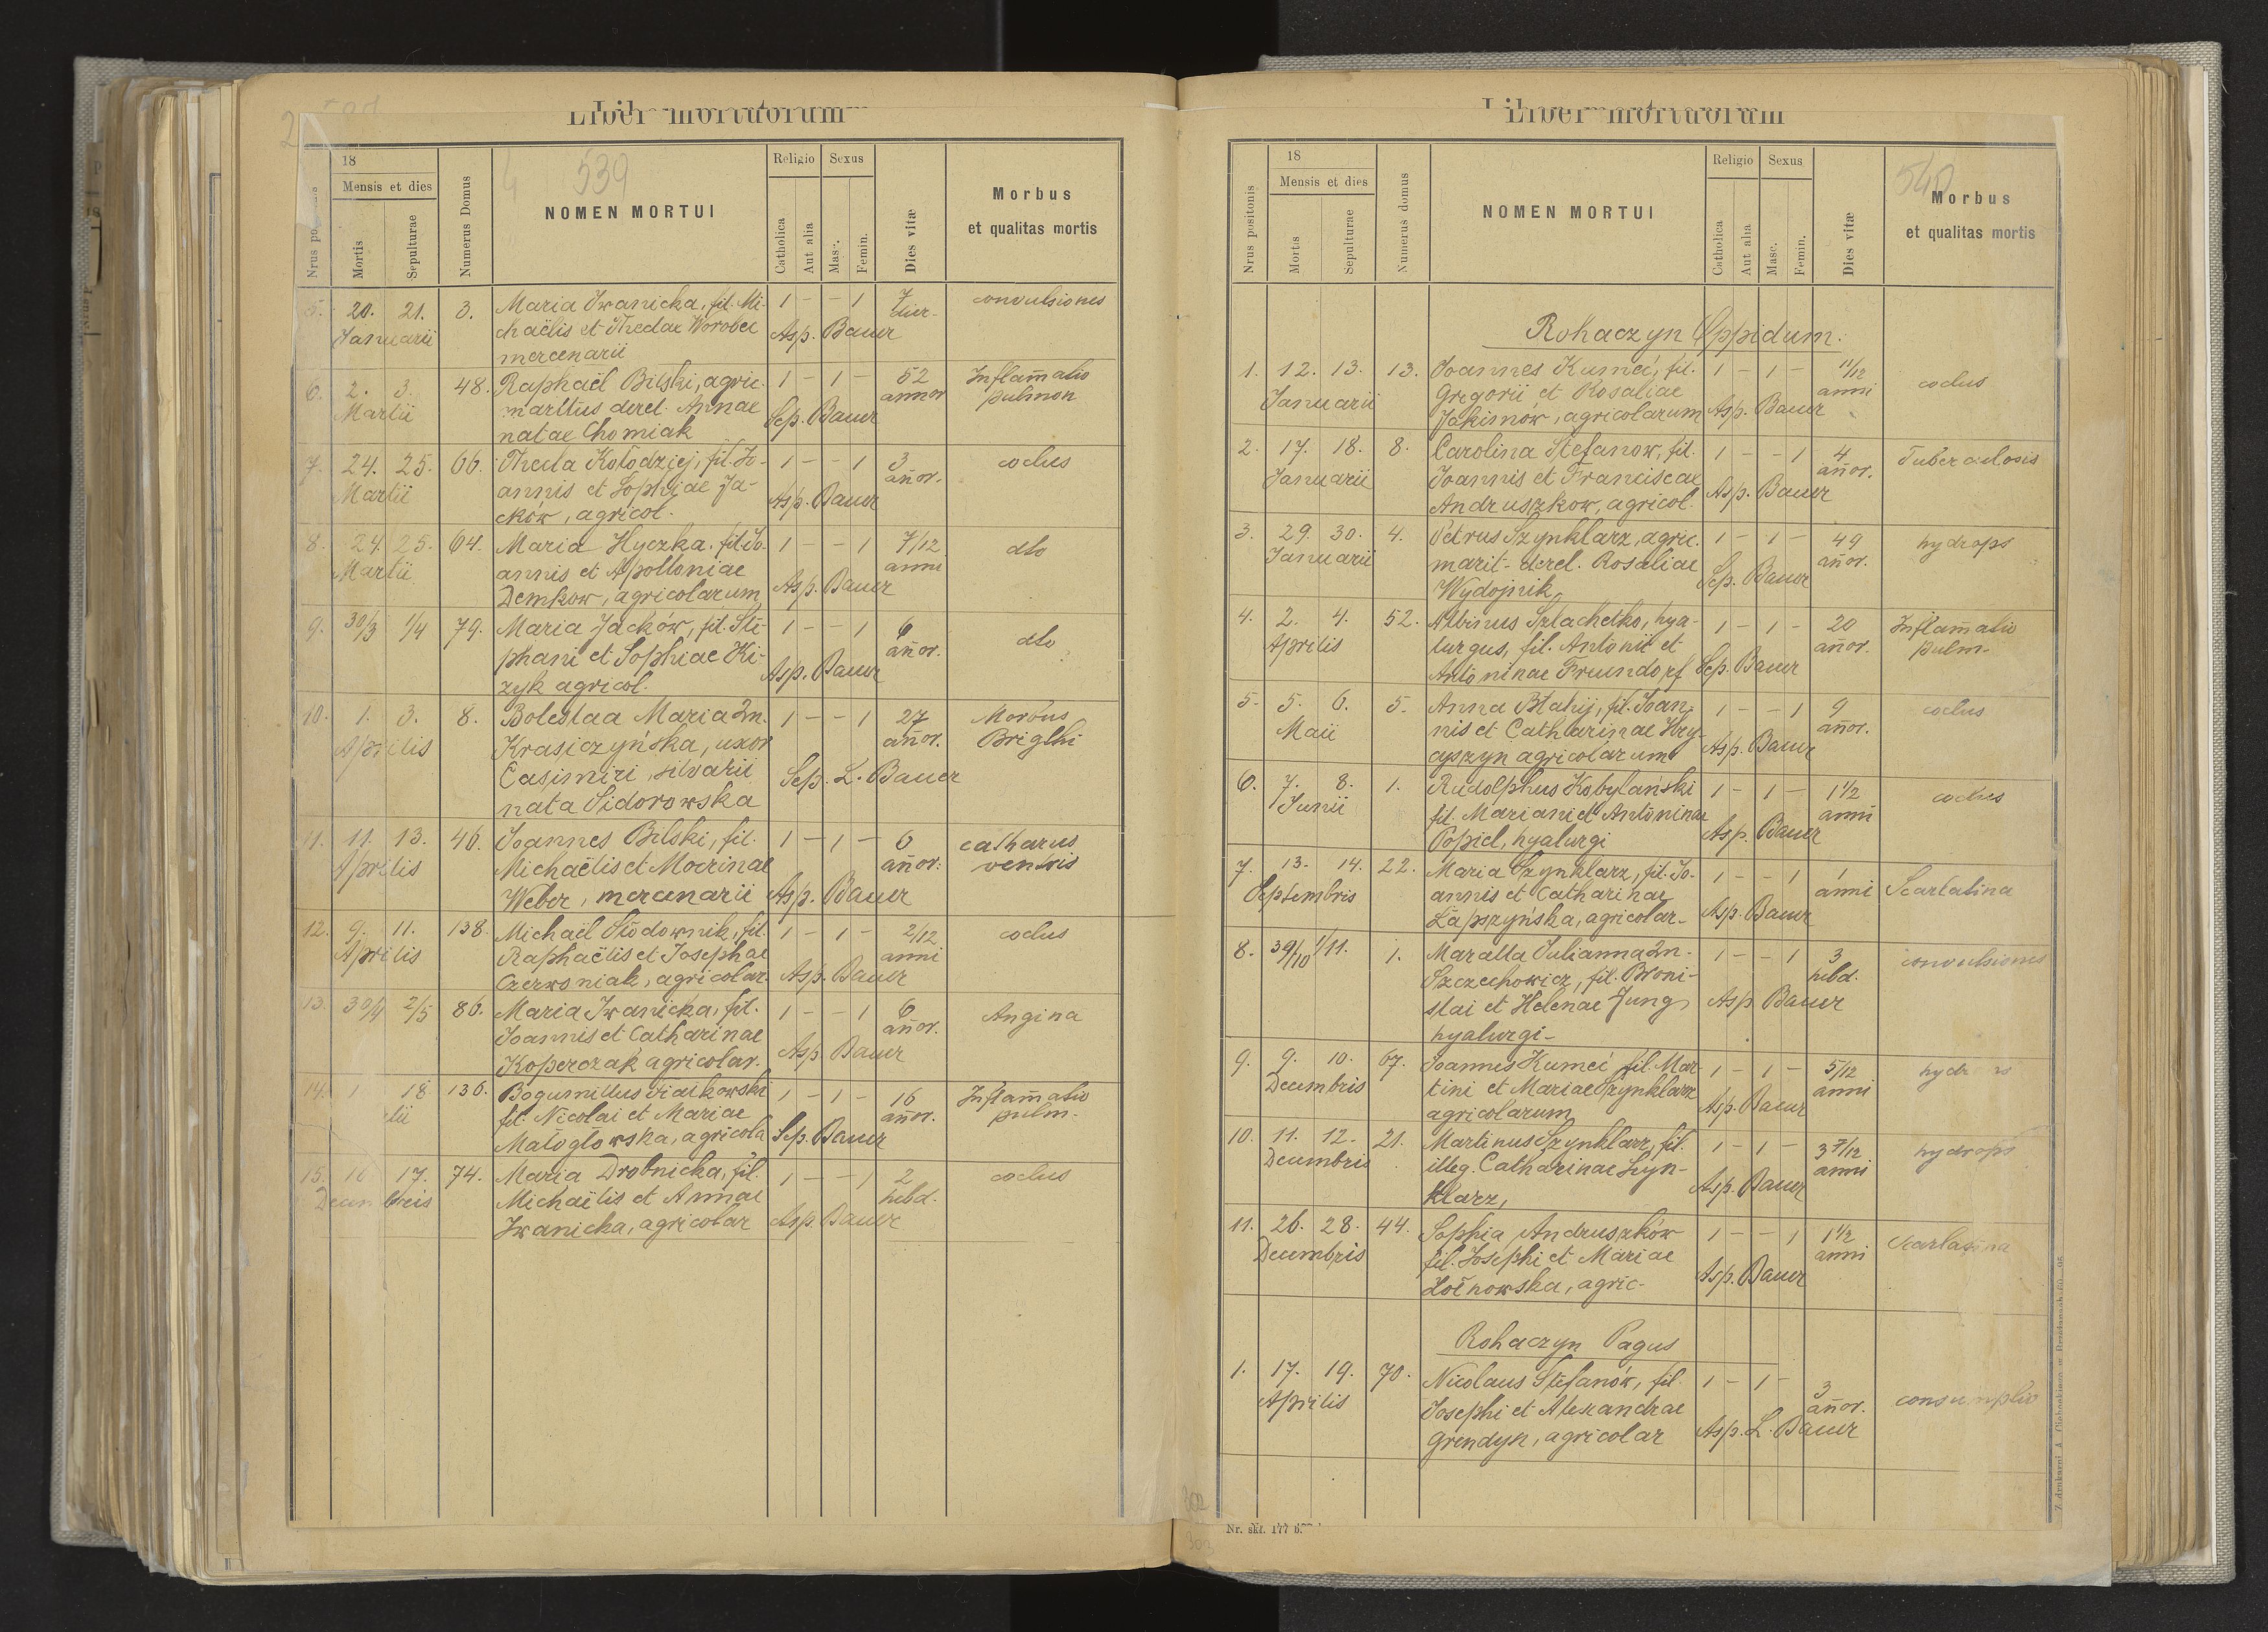 Liber mortuorum
539
18
Mensis et dies
Mortis
Sepulturae
Numerus Domus
NOMEN MORTUI
Religio
Sexus
Catholica
Aut alia
Masc.
Femin.
Dies vitæ
Morbus
et qualitas mortis
5. 20. 21. 3. Maria Iwanicka, fil. Mi- 1 – – 1 7 convulsiones
Januarii chaëlis et Theclae Worobec Asp. Bauer
mercenarii
6. 2. 3. 48. Raphaël Bilski, agric. 1 – 1 – 52 Inflam̄atio
Martii maritus derel. Annae Sep. Bauer annor pulmon
natae Chomiak
7. 24. 25. 66. Thecla Kołodziej, fil. Jo- 1 – – 1 3 coclus
Martii annis et Sophiae Ja- Asp. Bauer an̄or.
cków, agricol.
8. 24. 25. 64. Maria Hyczka, fil. Jo- 1 – – 1 7/12 dto
Martii annis et Apolloniae Asp. Bauer anni
Demkow, agricolarum
9. 30/3 1/4 79. Maria Jackow, fil. Ste- 1 – – 1 6 dto
phani et Sophiae Ki- Asp. Bauer an̄or.
zyk agricol.
10. 1. 3. 8. Boleslaa Maria 2n. 1 – – 1 27 Morbus
Aprilis Krasiczyńska, uxor an̄or. Brigthi
Casimiri, silvarii Sep. L. Bauer
nata Sidorowska
11. 11. 13. 46. Joannes Bilski, fil. 1 – 1 – 6 catharus
Aprilis Michaëlis et Mocrinae an̄or. ventris
Weber, mercenarii Asp. Bauer
12. 9. 11. 138. Michaël Słodownik, fil. 1 – 1 – 2/12 coclus
Aprilis Raphaëlis et Josephae anni
Czerwoniak, agricolar. Asp. Bauer
13. 30/4 2/5 86. Maria Iwanicka, fil. 1 – – 1 6 Angina
Joannis et Catharinae an̄or.
Koperczak agricolar. Asp. Bauer
14. 1 18 136. Bogumillus Fiałkowski 1 – 1 – 16 Inflam̄atio
lii fil. Nicolai et Mariae an̄or. pulm.
Małogłowska, agricola Sep. Bauer
15. 16 17. 74. Maria Drobnicka, fil. 1 – – 1 2 coclus
Decembris Michaëlis et Annae hebd.
Iwanicka, agricolar Asp. Bauer
Liber mortuorum
540
Nrus positonis
18
Mensis et dies
Mortis
Sepulturae
Numerus domus
NOMEN MORTUI
Religio
Sexus
Catholica
Aut alia
Masc.
Femin.
Dies vitæ
Morbus
et qualitas mortis
Rohaczyn Oppidum.
1. 12. 13. 13. Joannes Kumeć, fil. 1 – 1 – 11/12 coclus
Januarii Gregorii et Rosaliae anni
Jakimów, agricolarum Asp. Bauer
2. 17. 18. 8. Carolina Stefanow, fil. 1 – – 1 4 Tuberculosis
Januarii Joannis et Franciscae an̄or.
Andruszkow, agricol. Asp. Bauer
3. 29. 30. 4. Petrus Szynklarz, agric. 1 – 1 – 49 hydrops
Januarii marit. derel. Rosaliae an̄or.
Wydojnik Sep. Bauer
4. 2. 4. 52. Albinus Szlachetko, hya- 1 – 1 – 20 Inflam̄atio
Aprilis lurgus, fil. Antonii et an̄or. pulm.
Antoninae Freundorf Sep. Bauer
5. 5. 6. 5. Anna Błahij, fil. Joan- 1 – – 1 9 coclus
Maii nis et Catharinae Hry- an̄or.
agricolarum Asp. Bauer
6. 7. 8. 1. Rudolphus Kobylański 1 – 1 – 1 1/2 coclus
Junii fil. Mariani et Antoninae anni
Popiel, hyalurgi Asp. Bauer
7. 13. 14. 22. Maria Szynklarz, fil. Jo- 1 – – 1 1 Scarlatina
Septembris annis et Catharinae anni
Łapszyńska, agricolar. Asp. Bauer
8. 30/10 1/11. 1. Juliannа 2n. 1 – – 1 3 convulsiones
Szczechowicz, fil. Broni- hebd.
slai et Helenae Jung Asp. Bauer
hyalurgi
9. 9. 10. 67. Joannes Kumeć fil. Mar- 1 – 1 – 5/12
Decembris tini et Mariae Szynklarz anni
agricolarum Asp. Bauer
10. 11. 12. 21. Martinus Szynklarz, fil. 1 – 1 – 3 7/12 hydrops
Decembris illeg. Catharinae Szyn- anni
klarz, Asp. Bauer
11. 26. 28. 44. Sophia Andruszków 1 – – 1 1 1/2 Scarlatina
Decembris fil. Josephi et Mariae anni
agric. Asp. Bauer
Rohaczyn Pagus
1. 17. 19. 70. Nicolaus Stefanów, fil. 1 – 1 – 3 consumptio
Aprilis Josephi et Alexandrae an̄or.
Grendyn, agricolar Asp. L. Bauer
Nr. skł. 177
302
303